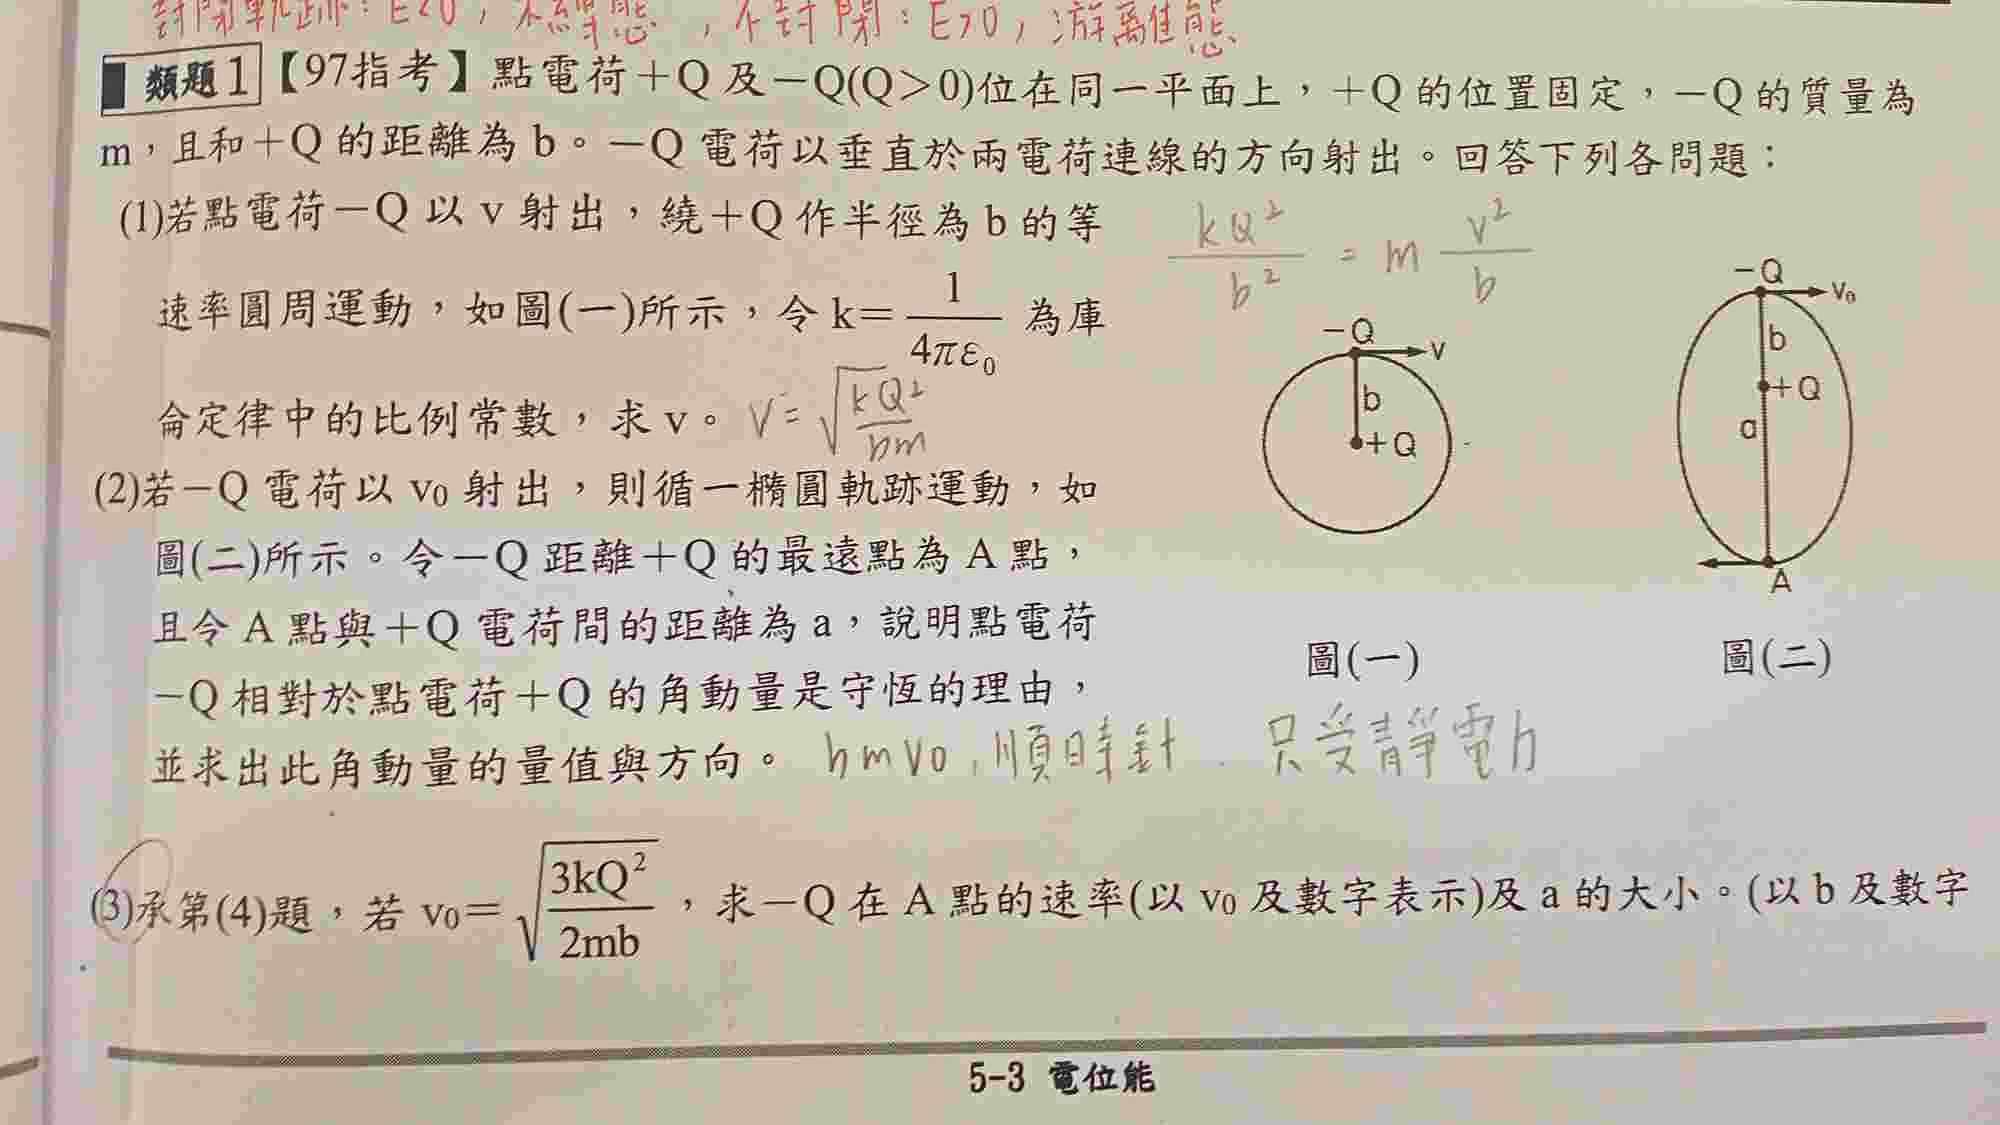 封閉軌跡：E<0，束縛態，不封閉：E>0，游離態
類題1【97指考】點電荷＋Q 及－Q(Q＞0)位在同一平面上，＋Q 的位置固定，－Q 的質量為
m，且和＋Q 的距離為 b。－Q 電荷以垂直於兩電荷連線的方向射出。回答下列各問題：
(1)若點電荷－Q 以 v 射出，繞＋Q 作半徑為 b 的等
速率圓周運動，如圖(一)所示，令 k＝1/4πε₀ 為庫
侖定律中的比例常數，求 v。 v = √(kQ²/bm)
kQ²/b² = m v²/b
(2)若－Q 電荷以 v₀ 射出，則循一橢圓軌跡運動，如
圖(二)所示。令－Q 距離＋Q 的最遠點為 A 點，
且令 A 點與＋Q 電荷間的距離為 a，說明點電荷
－Q 相對於點電荷＋Q 的角動量是守恆的理由，
並求出此角動量的量值與方向。 bmv₀，順時針. 只受靜電力
－Q
v
b
＋Q
圖(一)
－Q
v₀
b
＋Q
a
A
圖(二)
(3)承第(4)題，若 v₀＝√(3kQ²/2mb)，求－Q 在 A 點的速率(以 v₀ 及數字表示)及 a 的大小。(以 b 及數字
5-3 電位能